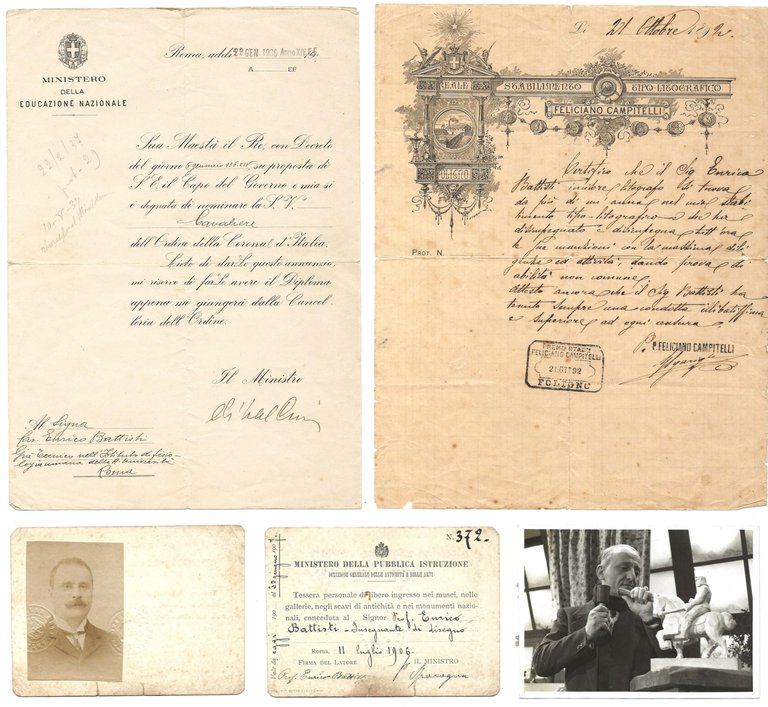 Roma, addì 29 GEN 1936 Anno XIV E.F.
A EF
MINISTERO
DELLA
EDUCAZIONE NAZIONALE
22/2/37
Sua Maestà il Re, con Decreto
del giorno 6 gennaio 936-XIV su proposta di
S. E. il Capo del Governo e mia si
è degnata di nominare la S. V.
Cavaliere
dell'Ordine della Corona d'Italia.
Lieto di darLe questo annunzio,
mi riservo di farLe avere il Diploma
appena mi giungerà dalla Cancel-
leria dell'Ordine.
Il Ministro
Al Signor
Cav. Enrico Battisti
Già Tecnico nell'Istituto di fisio-
logia umana della R. Università
Roma
Li 21 Ottobre 1892.
REALE STABILIMENTO TIPO-LITOGRAFICO
FELICIANO CAMPITELLI
FOLIGNO
PROT. N.
Certifico che il Sig Enrico
Battisti incisore litografo si trova
da più di un anno nel mio stabi
limento tipo-litografico e che ha
disimpegnato e disimpegna tutt'ora
le sue mansioni con la massima dili
genza ed attività, dando prova di
abilità non comune
Attesto ancora che il Sig Battisti ha
tenuto sempre una condotta illibatissima
e superiore ad ogni censura
P. P. FELICIANO CAMPITELLI
FELICIANO CAMPITELLI
21 OTT 92
FOLIGNO
N. 372.
MINISTERO DELLA PUBBLICA ISTRUZIONE
DIREZIONE GENERALE DELLE ANTICHITÀ E BELLE ARTI
Tessera personale di libero ingresso nei musei, nelle
gallerie, negli scavi di antichità e nei monumenti nazio-
nali, conceduta al Signor Prof. Enrico
Battisti - Insegnante di disegno
Roma, 11 luglio 1906.
FIRMA DEL LATORE IL MINISTRO
Prof. Enrico Battisti
Vale da oggi 190 al 30 giugno 190